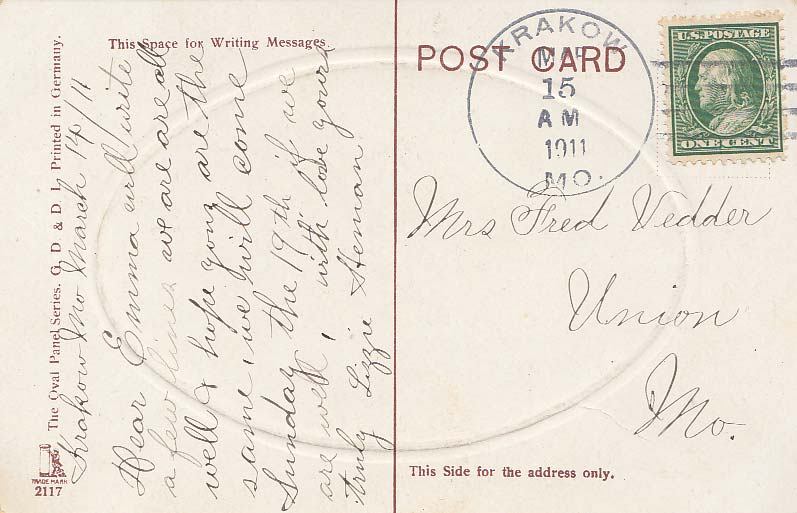 The Oval Panel Series. G. D. & D. L. Printed in Germany.
TRADE MARK
2117
This Space for Writing Messages.
Krakow Mo March 14/11
Dear Emma will write
a few lines we are are all
well & hope youz are the
same, we will come
Sunday the 19th if we
are well, with love yours
truly Lizzie Heman
POST CARD
KRAKOW
MAR
15
AM
1911
MO.
U.S. POSTAGE
ONE CENT
Mrs Fred Vedder
Union
Mo.
This Side for the address only.